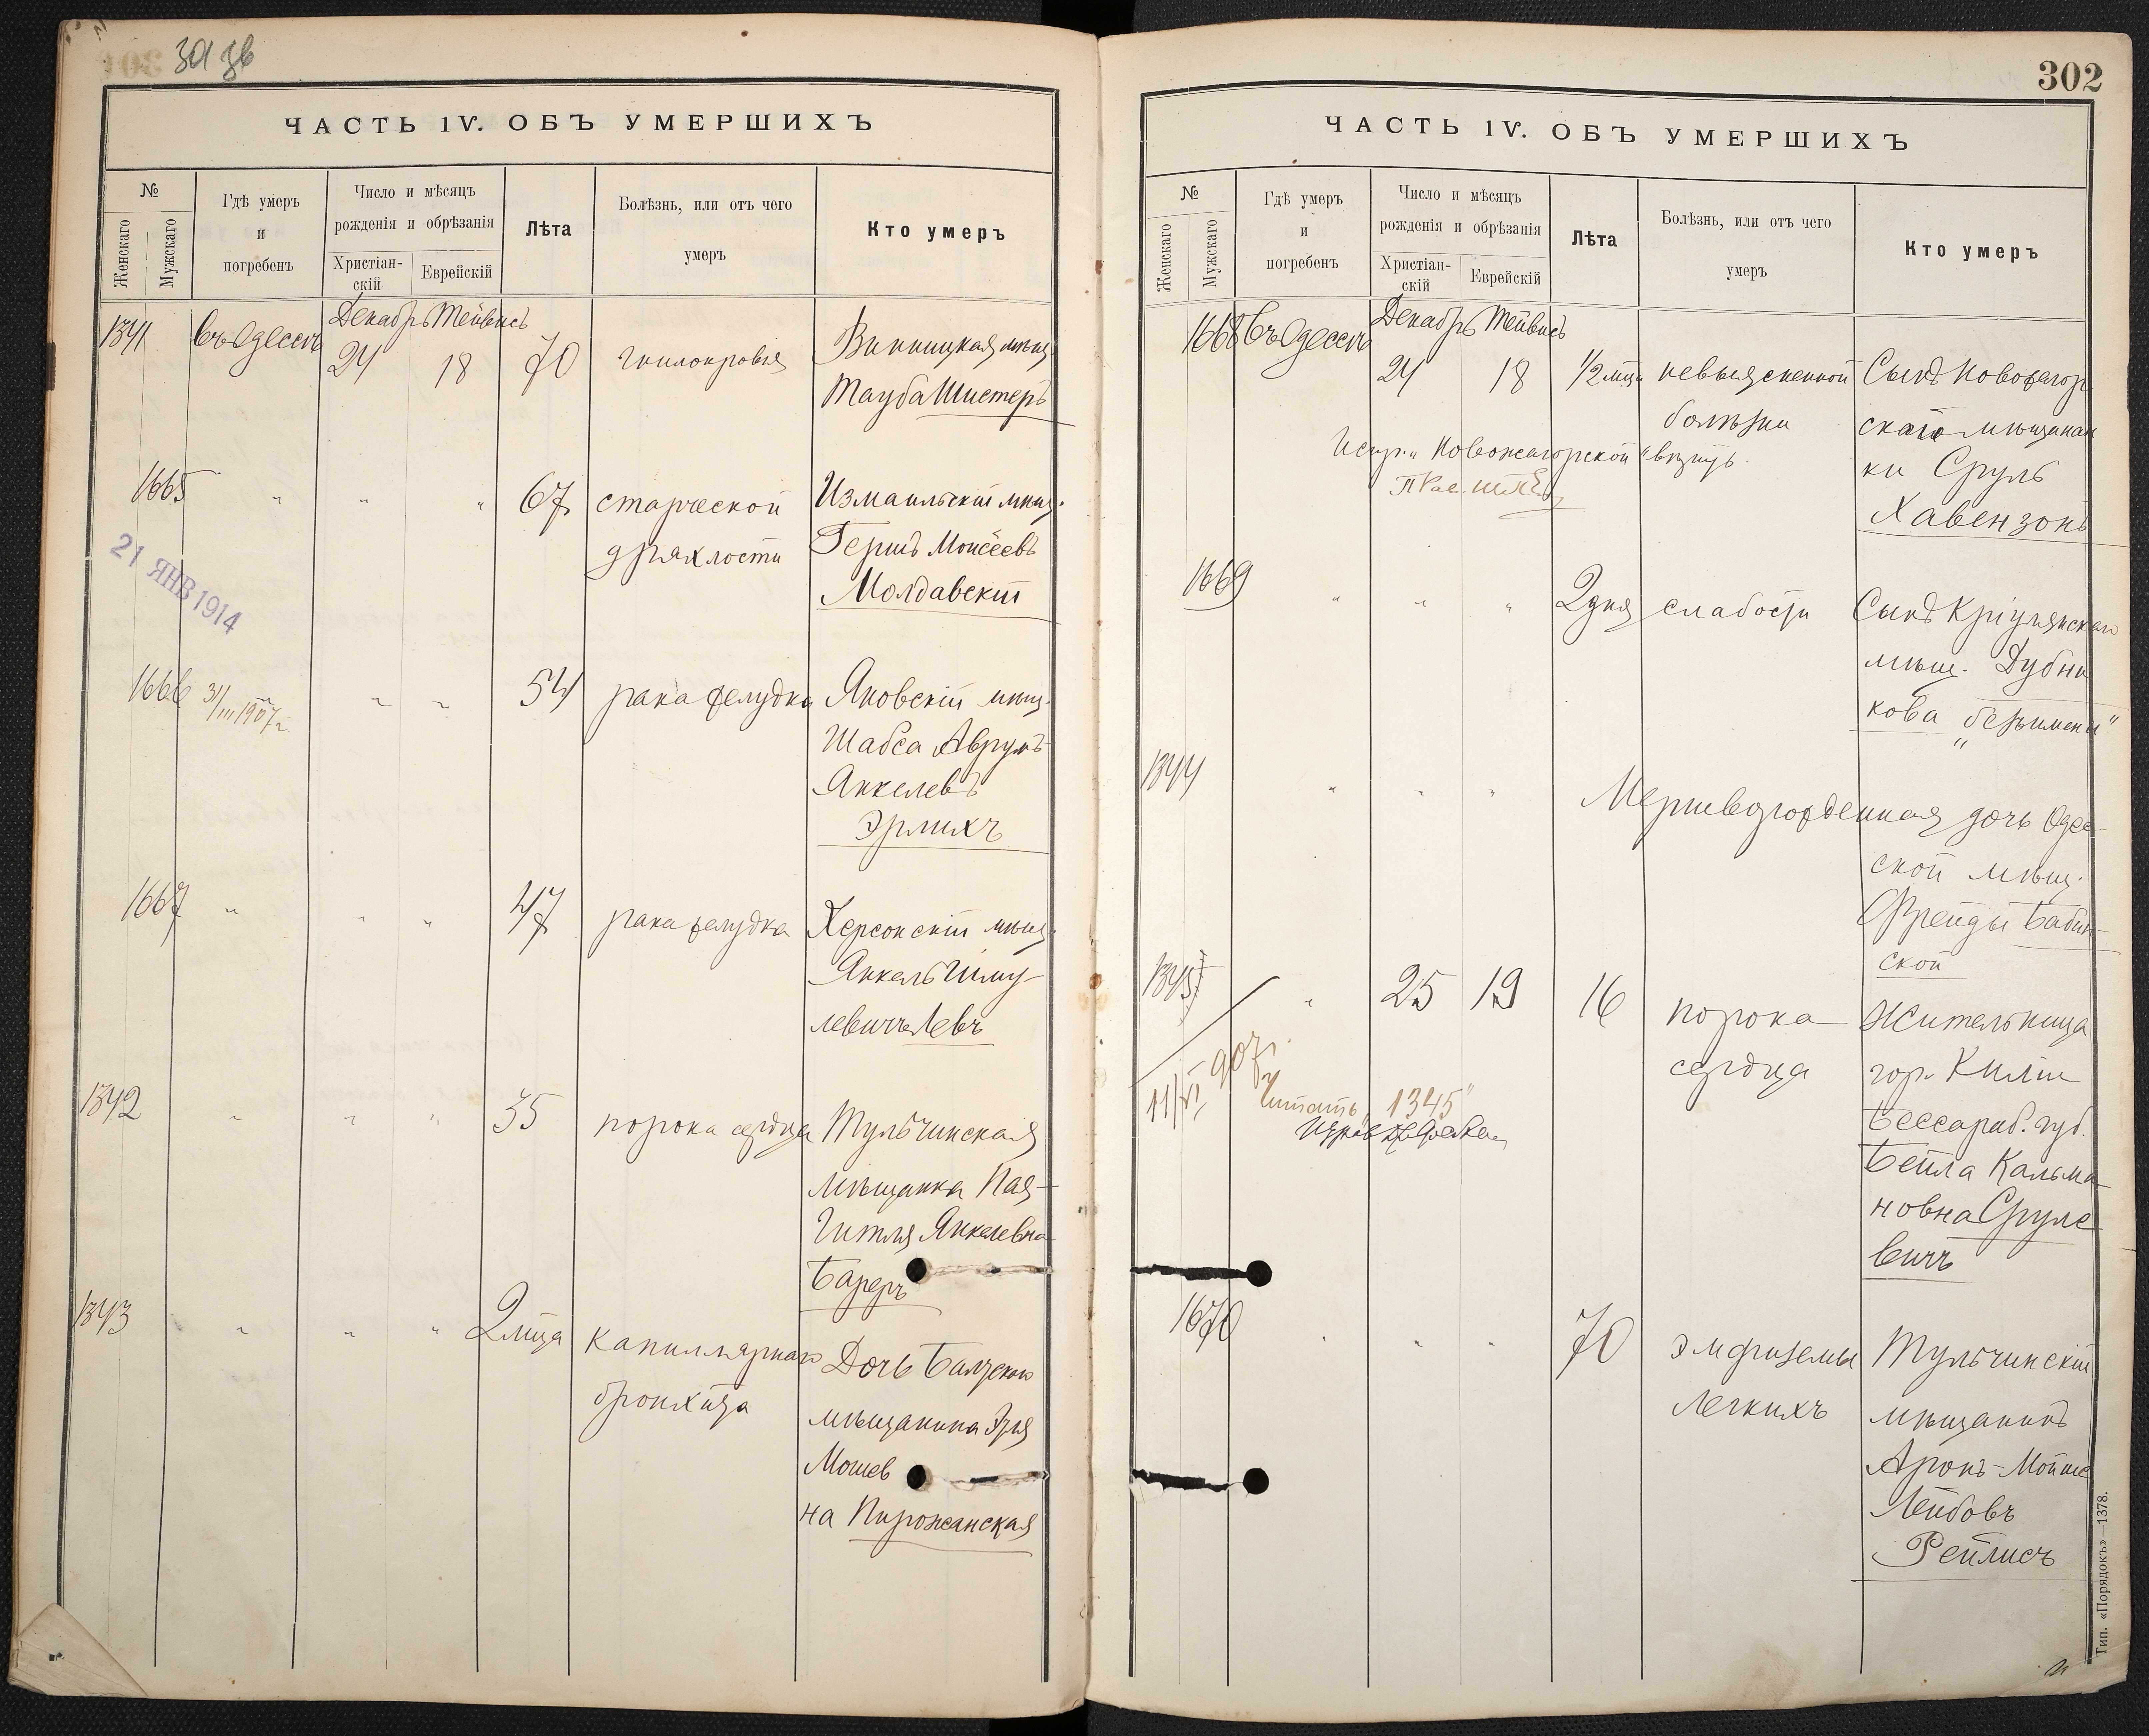 ЧАСТЬ IV. ОБЪ УМЕРШИХЪ
№
Женскаго
Мужскаго
Гдѣ умеръ
и
погребенъ
Число и мѣсяцъ
рожденія и обрѣзанія
Христіан-
скій
Еврейскій
Лѣта
Болѣзнь, или отъ чего
умеръ
Кто умеръ
Декабрь Тейвисъ
1341 Въ Одессѣ 24 18 70 гнилокровія Винницкая мѣщ.
Тауба Шистеръ
1665 " " " 67 старческой Измаильскій мѣщ.
дряхлости Гершъ Моисеевъ
Молдавскій
21 ЯНВ 1914
1666 31/III 1907 г. " " 54 рака желудка Яновскій мѣщ.
Шабса Аврумъ
Янкелевъ
Эрлихъ
1667 " " " 47 рака желудка Херсонскій мѣщ.
Янкель Шму-
левичъ Левъ
1342 " " " 35 порока сердца Тульчинская
мѣщанка Пая-
Гитля Янкелевна
Бареръ
1343 " " " 2 мца капиллярнаго Дочь Балтскаго
бронхита мѣщанина
Мошев
на Пирожанская
302
ЧАСТЬ IV. ОБЪ УМЕРШИХЪ
№
Женскаго
Мужскаго
Гдѣ умеръ
и
погребенъ
Число и мѣсяцъ
рожденія и обрѣзанія
Христіан-
скій
Еврейскій
Лѣта
Болѣзнь, или отъ чего
умеръ
Кто умеръ
Декабрь Тейвисъ
1668 Въ Одессѣ 24 18 1/2 мца невыясненной Сынъ Новожагор
болѣзни скаго мѣщанан
ки Сруль
Хавензонъ
Испр. "Новожагорской" вѣрить.
1669 " " " 2 дня слабости Сынъ Кріулянскаго
мѣщ. Дубни
кова "безъимени"
1344 " " " Мертворожденная дочь Одес-
ской мѣщ.
Фрейды Бабин-
ской
1345 " 25 19 16 порока Жительница
сердца гор. Киліи
Бессараб. губ.
Бейла Кальма-
новна Сруле-
вичъ
11/VI 907 г.
Читать "1345"
1670 " " " 70 эмфиземы Тульчинскій
легкихъ мѣщанинъ
Аронъ-Мойше
Лейбовъ
Рейлисъ
Тип. «Порядокъ»—1378.